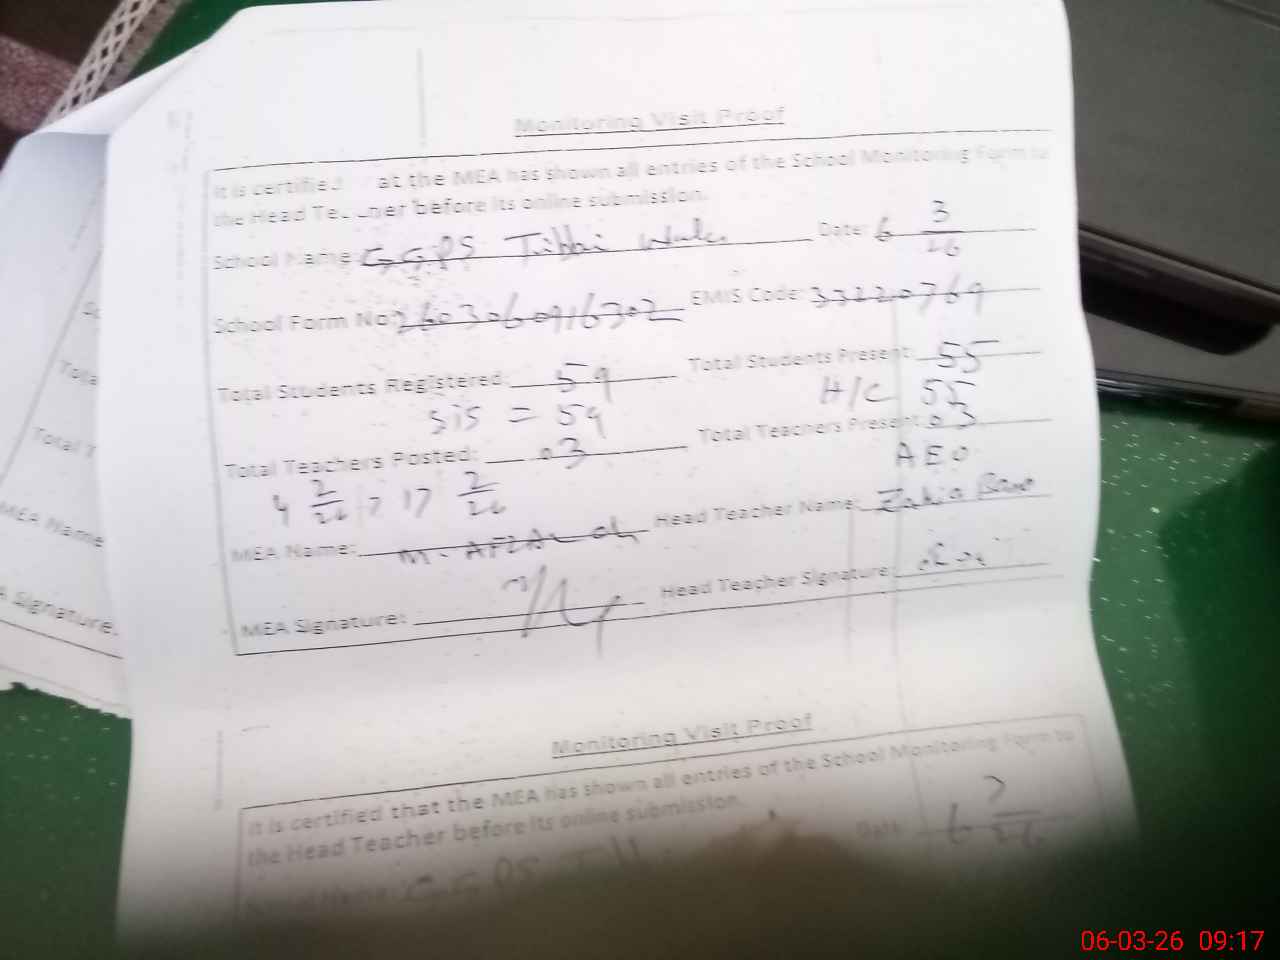 Monitoring Visit Proof
It is certified at the MEA has shown all entries of the School Monitoring Form to
the Head Teacher before its online submission.
School Name: GGPS Tibbi Wala Date: 6 3/26
School Form No: 2603060916302 EMIS Code: 33220769
Total Students Registered: 59 Total Students Present: 55
SIS = 59 H/C 55
Total Teachers Posted: 03 Total Teachers Present: 03
4 2/26 > 17 2/26 AEO
MEA Name: M. AFZAL Head Teacher Name: Zakia Bano
MEA Signature: Head Teacher Signature:
Monitoring Visit Proof
It is certified that the MEA has shown all entries of the School Monitoring Form to
the Head Teacher before its online submission.
GGPS Date: 6
Total
Total T
MEA Name
Signature:
06-03-26 09:17